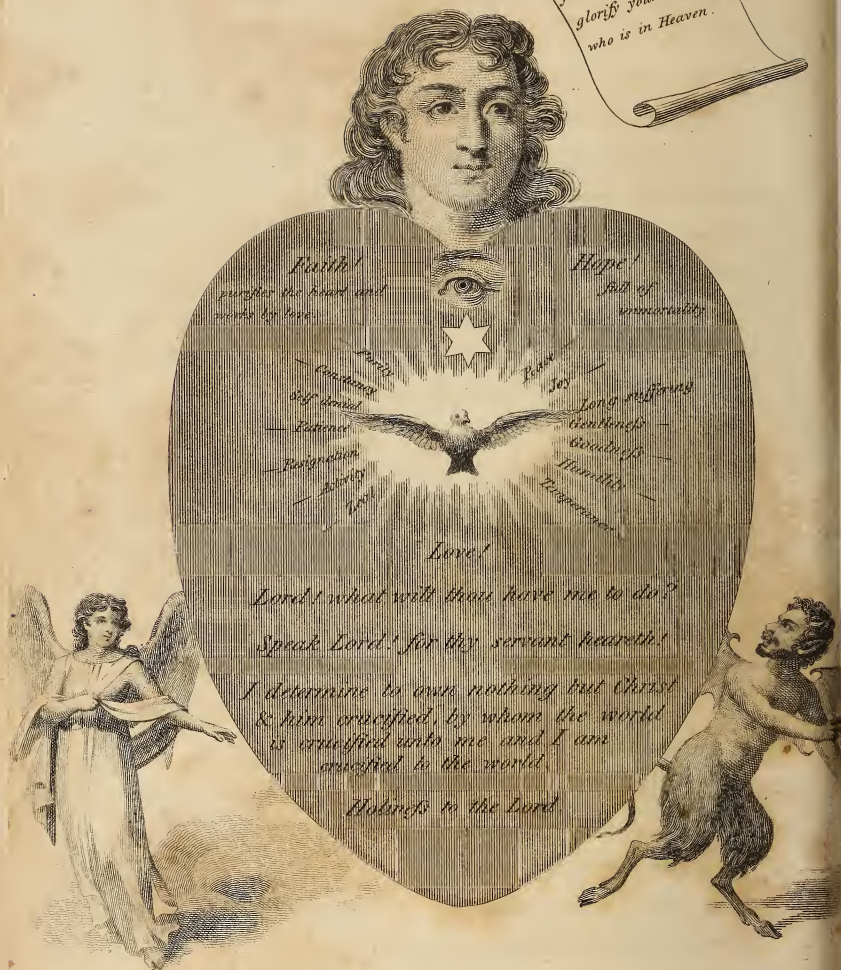 glorify
who is in Heaven.
Faith!
purifies the heart and
works by love.
Hope!
full of
immortality
Purity
Constancy
Self denial
Patience
Resignation
Activity
Zeal
Peace
Joy
Long suffering
Gentleneſs
Goodneſs
Humility
Temperance
Love!
Lord! what wilt thou have me to do?
Speak Lord! for thy servant heareth!
I determine to own nothing but Christ
& him crucified, by whom the world
is crucified unto me and I am
crucified to the world.
Holineſs to the Lord.